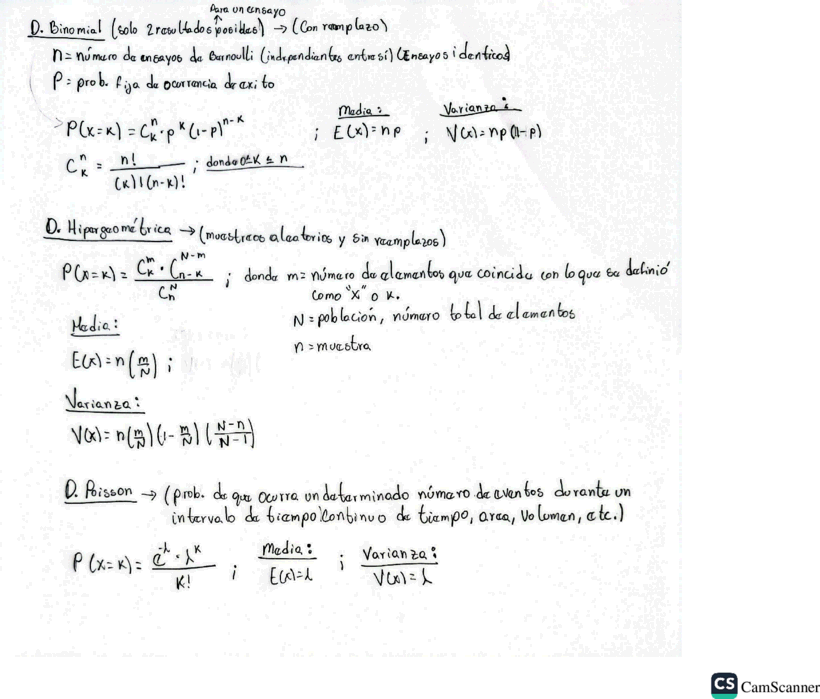 Para un ensayo
D. Binomial (solo 2 resultados posibles) → (Con reemplazo)
n = número de ensayos de Bernoulli (independientes entre si) (Ensayos identicos)
P = prob. fija de ocurrencia de exito
Media: Varianza:
P(x=k) = C^n_k · p^k (1-p)^{n-k} ; E(x) = np ; V(x) = np(1-p)
C^n_k = n! / (k)!(n-k)! ; donde 0≤k≤n
D. Hipergeométrica → (muestreos aleatorios y sin reemplazos)
P(x=k) = C^m_k · C^{N-m}_{n-k} / C^N_n ; donde m = número de elementos que coincide con lo que se definió
como "x" o k.
N = población, número total de elementos
n = muestra
Media:
E(x) = n(m/N) ;
Varianza:
V(x) = n(m/N)(1-m/N)(N-n/N-1)
D. Poisson → (prob. de que ocurra un determinado número de eventos durante un
intervalo de tiempo continuo de tiempo, area, volumen, etc.)
P(x=k) = e^{-λ} · λ^k / k! ; Media: E(x)=λ ; Varianza: V(x)=λ
CS CamScanner